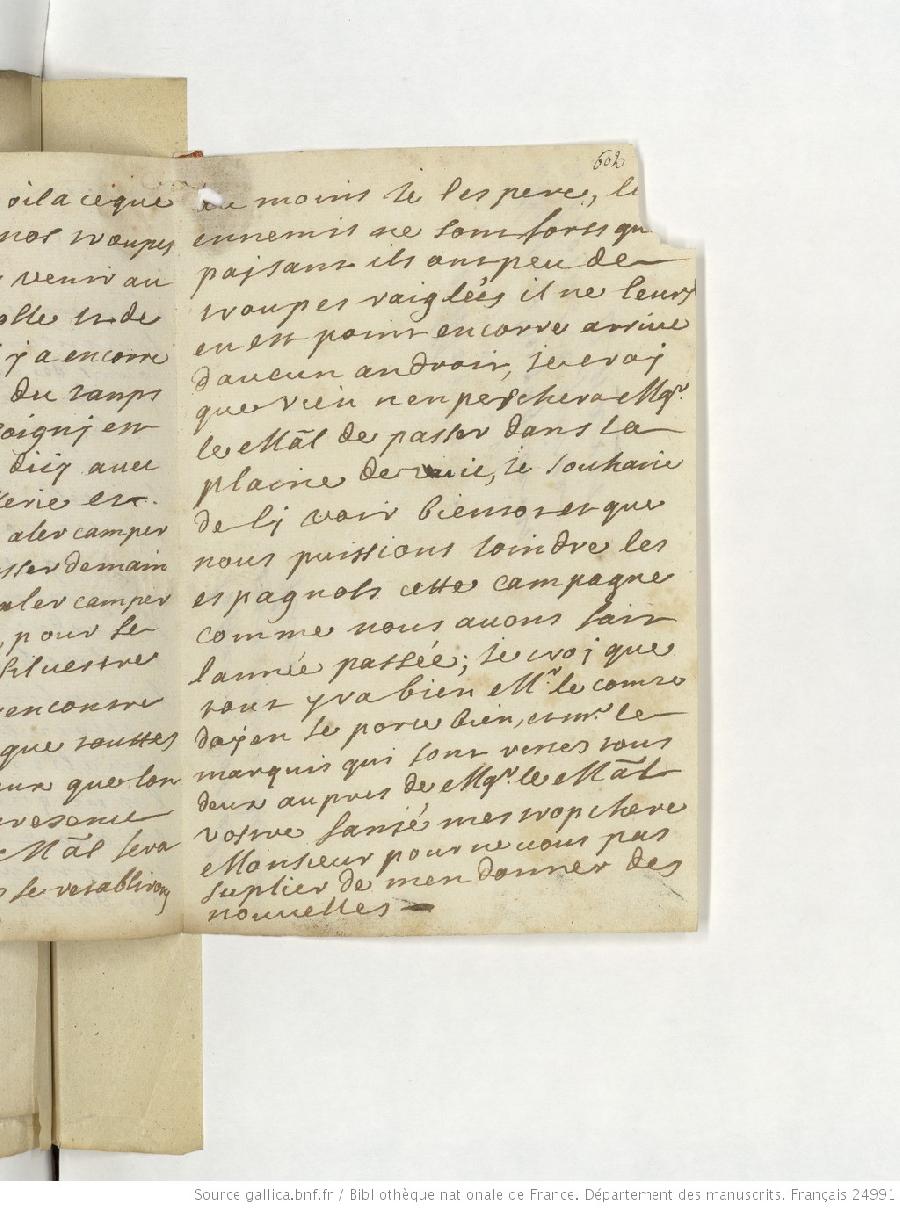 oila ceque
nos troupes
venir au
olle et de
y a encorre
du tamps
oignj est
dicy avec
lerie est
aler camper
sser demain
aler camper
pour se
silvestre
rencontre
que touttes
eux que lon
presence
Mãl sera
se retabliront
502
au moins je lespere, le
ennemis ne sont forts qu
paisant ils ont peu de
troupes raiglées il ne leurs
en est point encorre arrive
daucun androit, je croj
que rien nenpeschera Mgr.
le Mãl de passer dans la
plaine de vic, je souhaite
de lj voir bientost et que
nous puissions joindre les
espagnols cette campagne
comme nous avons fait
lannée passée; je croj que
tout yra bien Mr. le comte
dayen se porte bien, et mr. le
marquis qui sont venes tous
deux aupres de Mgr. le Mãl
vostre santé mes trop chere
Monsieur pour ne vous pas
suplier de men donner des
nouvelles
Source gallica.bnf.fr / Bibliothèque nationale de France. Département des manuscrits. Français 24991